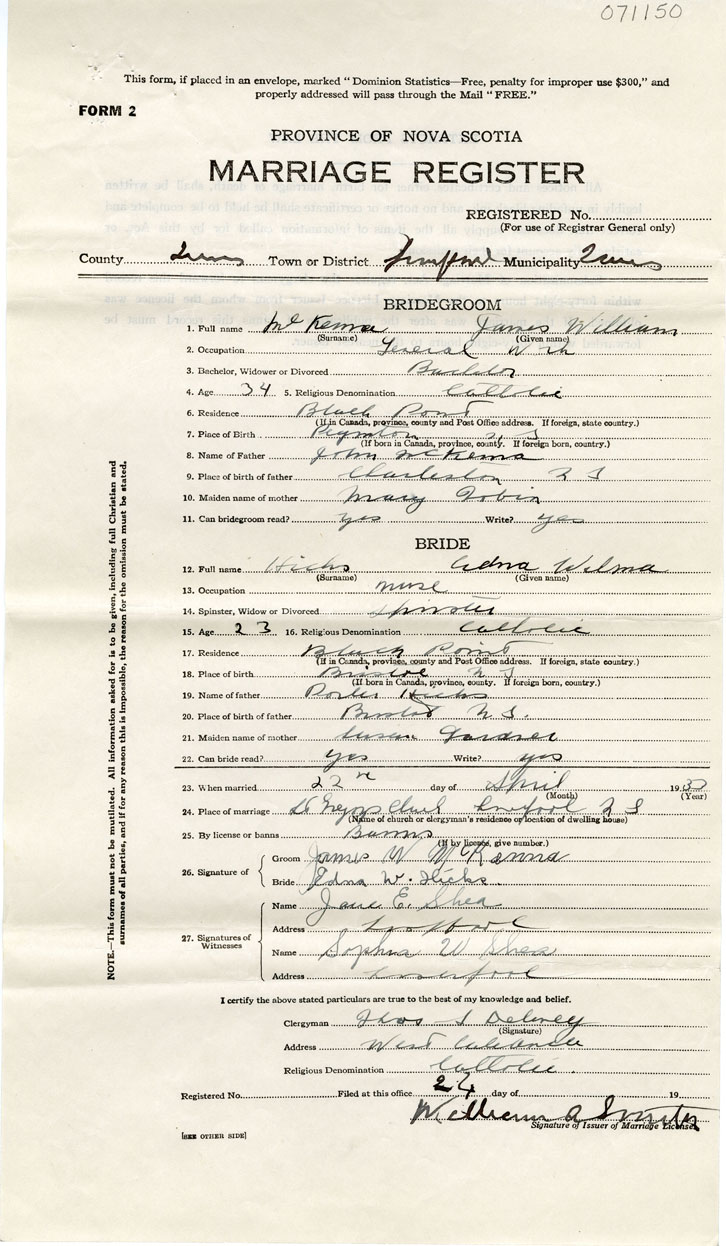 071150
This form, if placed in an envelope, marked "Dominion Statistics—Free, penalty for improper use $300," and
properly addressed will pass through the Mail "FREE."
FORM 2
PROVINCE OF NOVA SCOTIA
MARRIAGE REGISTER
REGISTERED No.
(For use of Registrar General only)
County Queens Town or District Liverpool Municipality Queens
BRIDEGROOM
1. Full name McKenna James William
(Surname) (Given name)
2. Occupation General Work
3. Bachelor, Widower or Divorced Bachelor
4. Age 34 5. Religious Denomination Catholic
6. Residence Black Point
(If in Canada, province, county and Post Office address. If foreign, state country.)
7. Place of Birth N. S
(If born in Canada, province, county. If foreign born, country.)
8. Name of Father John McKenna
9. Place of birth of father Charleston N S
10. Maiden name of mother Mary Tobin
11. Can bridegroom read? yes Write? yes
BRIDE
12. Full name Hicks Edna Wilma
(Surname) (Given name)
13. Occupation nurse
14. Spinster, Widow or Divorced Spinster
15. Age 23 16. Religious Denomination Catholic
17. Residence Black Point
(If in Canada, province, county and Post Office address. If foreign, state country.)
18. Place of birth N S
(If born in Canada, province, county. If foreign born, country.)
19. Name of father Hicks
20. Place of birth of father Bristol N. S.
21. Maiden name of mother Susan Gardner
22. Can bride read? yes Write? yes
23. When married 22nd day of April 19
(Month) (Year)
24. Place of marriage St Church Liverpool N S
(Name of church or clergyman's residence or location of dwelling house)
25. By license or banns Banns
(If by licence, give number.)
26. Signature of
Groom James W McKenna
Bride Edna W. Hicks.
27. Signatures of
Witnesses
Name Jane E. Shea
Address Liverpool
Name Sophia W Shea
Address Liverpool
I certify the above stated particulars are true to the best of my knowledge and belief.
Clergyman Thos J Delaney
(Signature)
Address West Caledonia
Religious Denomination Catholic.
Registered No. Filed at this office 24 day of 19
William A Smith
Signature of Issuer of Marriage Licenses
[SEE OTHER SIDE]
NOTE.—This form must not be mutilated. All information asked for is to be given, including full Christian and
surnames of all parties, and if for any reason this is impossible, the reason for the omission must be stated.